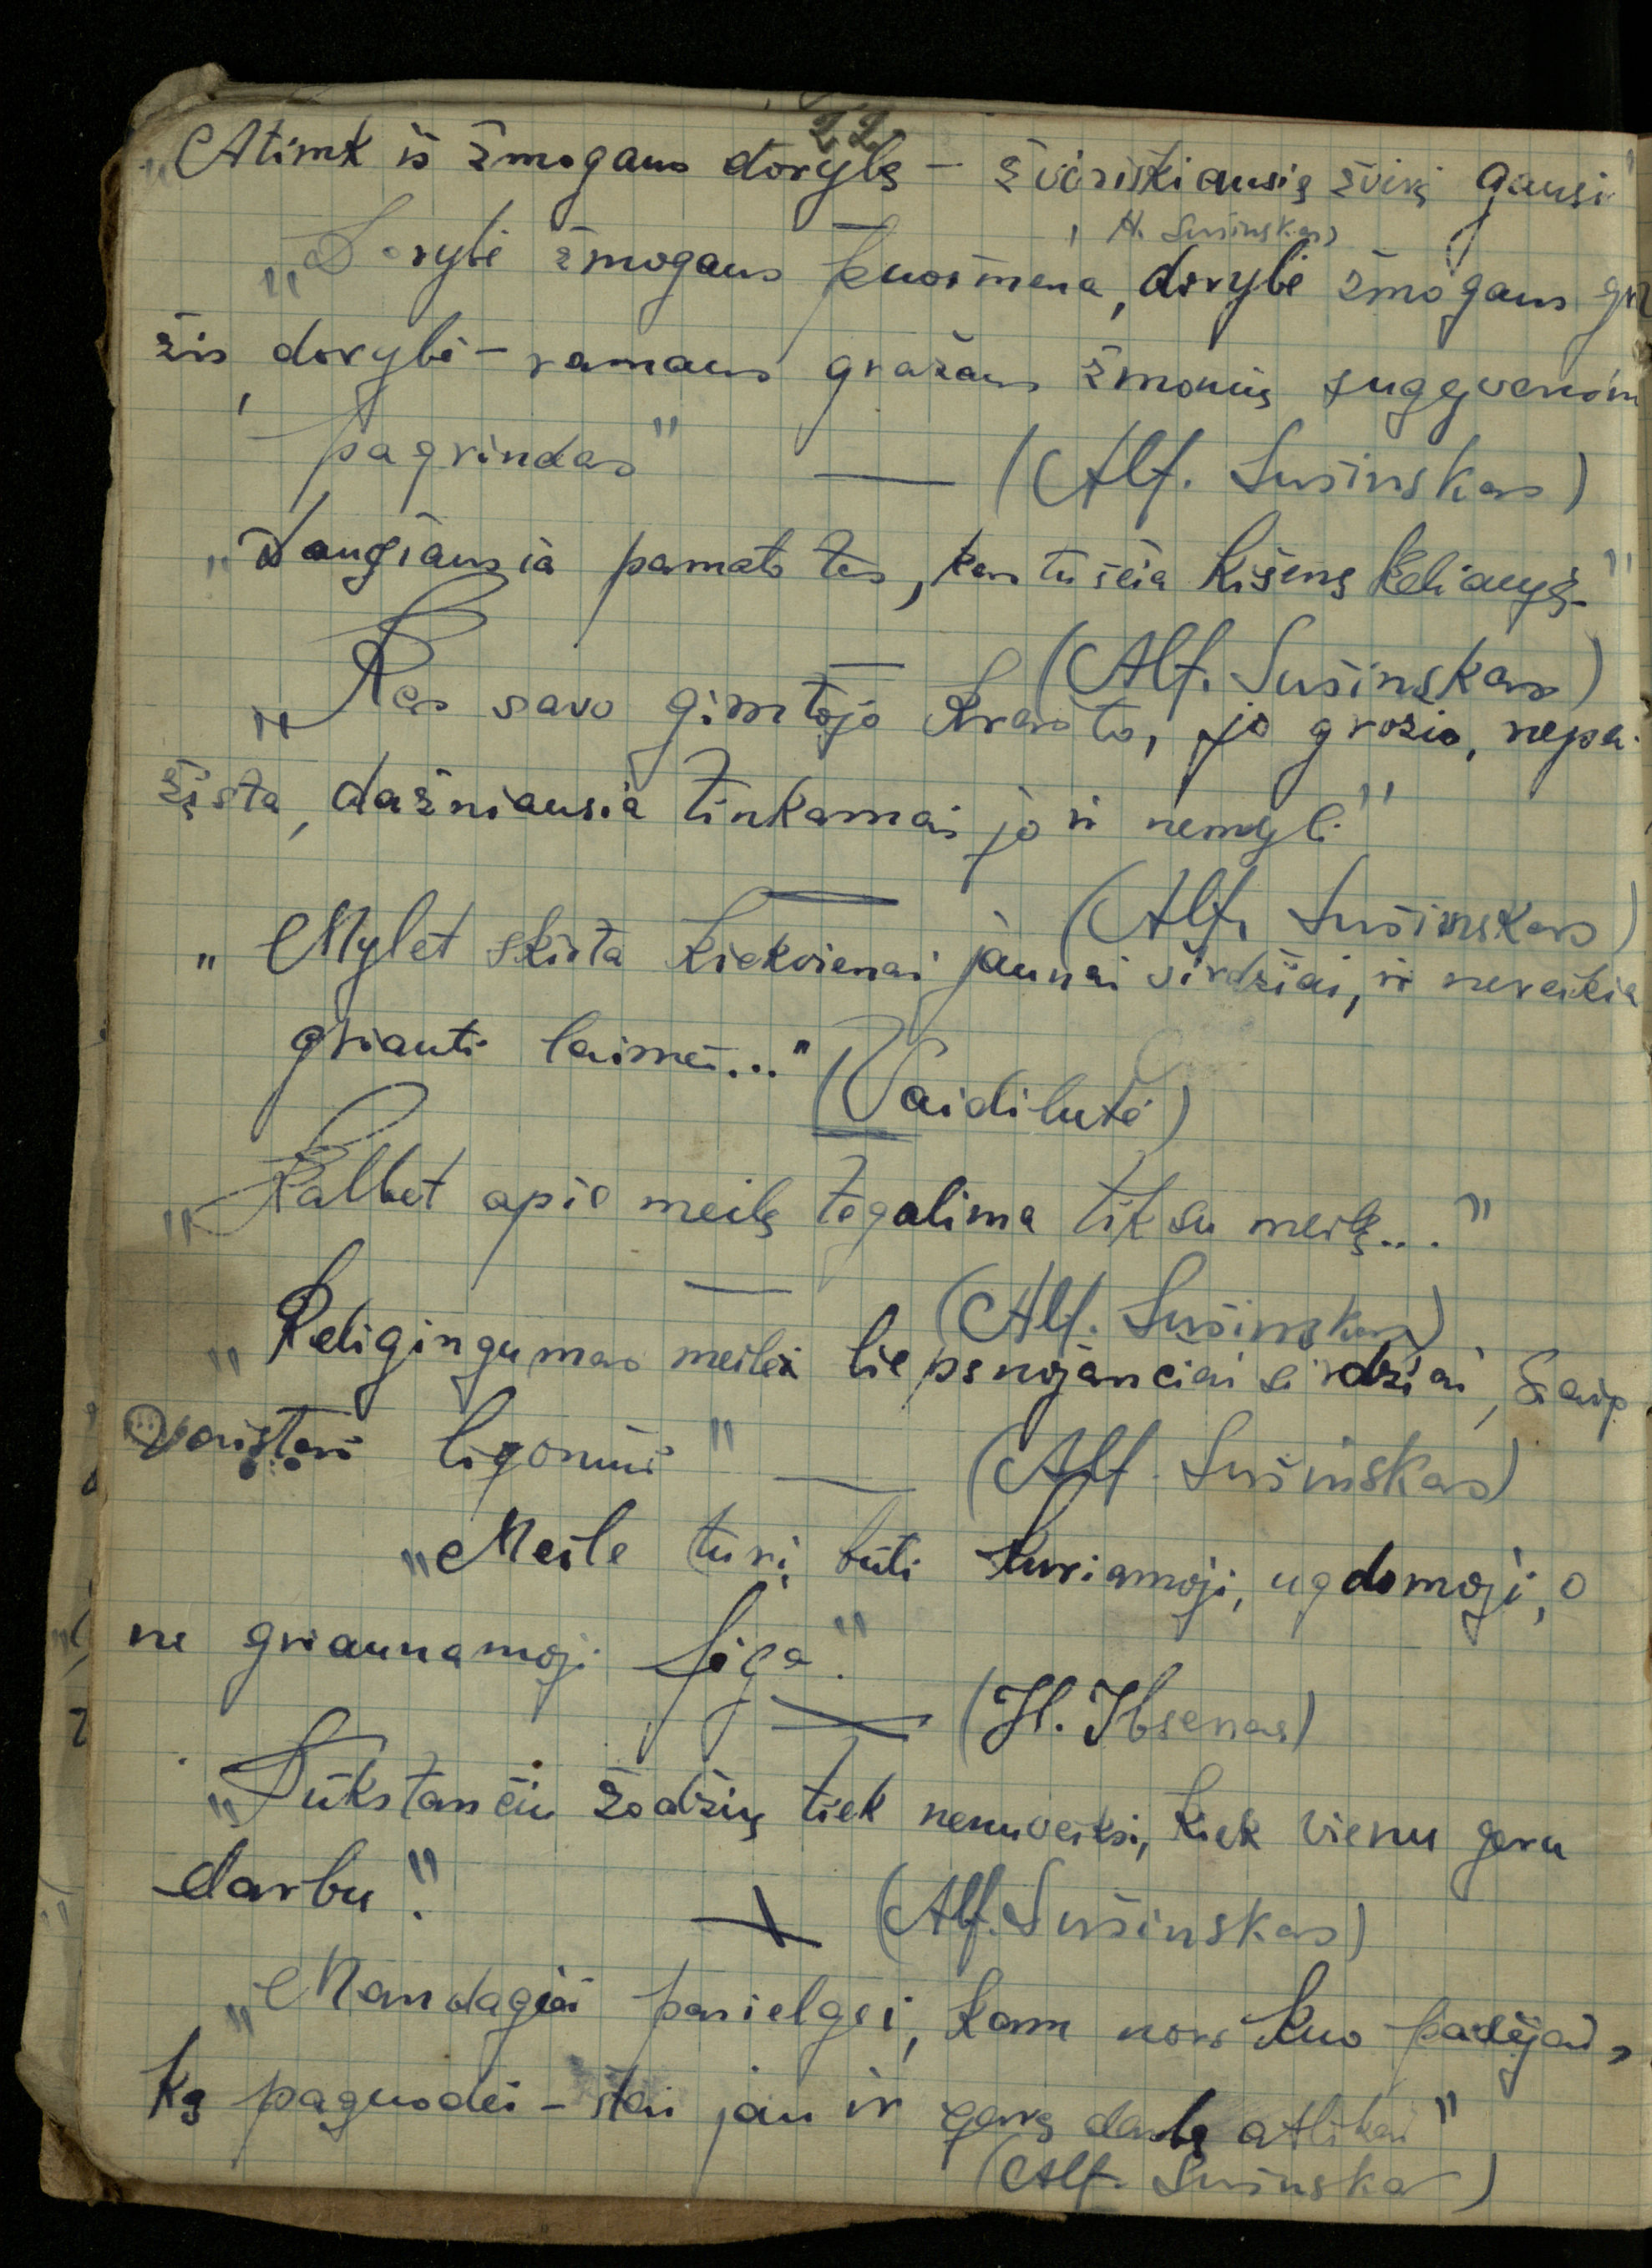 22
„Atimk iš žmogaus dorybę – žvėriškiausią žvėrį gausi"
A. Sušinskas
„Dorybė žmogaus puošmena, dorybė žmogaus gro
žis, dorybė – ramaus gražaus žmonių sugyvenim
pagrindas" — (Alf. Sušinskas)
„Daugiausia pamato tas, kas tuščia kišene keliauja"
— (Alf. Sušinskas)
„Kas savo gimtojo krašto, jo grožio, nepa-
žįsta, dažniausia tinkamai jo ir nemyli"
— (Alf. Sušinskas)
„Mylėt skirta kiekvienai jaunai širdžiai, ir nereikia
griauti laimės..." (Vaidilutė)
„Kalbėt apie meilę tegalima tik su meile..."
— (Alf. Sušinskas)
„Religingumas meilei liepsnojančiai širdžiai, kaip
vaistai ligoniui" — (Alf. Sušinskas)
„Meilė turi būti kuriamoji, ugdomoji, o
ne griaunamoji jėga."
— (H. Ibsenas)
„Tūkstančiu žodžių tiek nenuveiksi, kiek vienu geru
darbu." — (Alf. Sušinskas)
„Mandagiai pasielgei, kam nors kuo padėjai,
ką paguodei – štai jau ir gerą darbą atlikai"
(Alf. Sušinska)